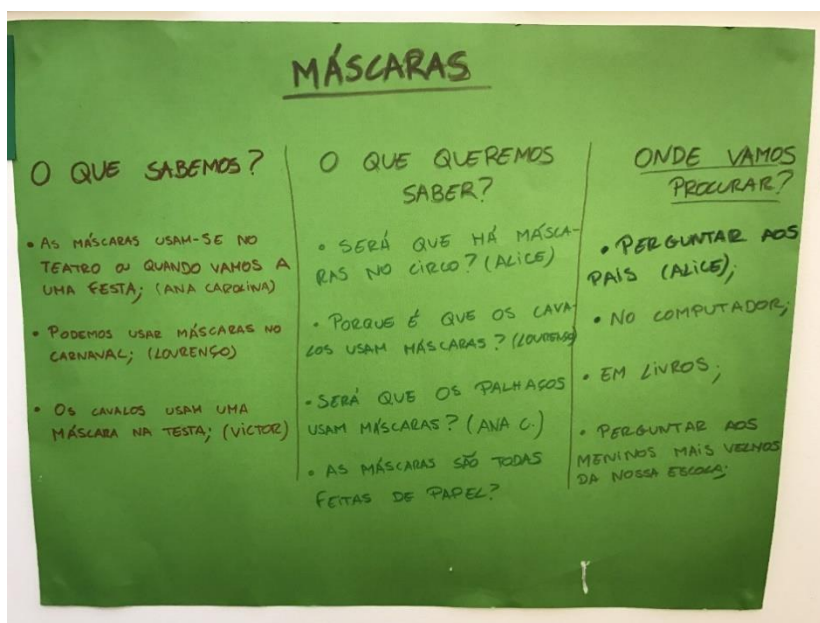 MÁSCARAS
O QUE SABEMOS?
• AS MÁSCARAS USAM-SE NO
TEATRO OU QUANDO VAMOS A
UMA FESTA; (ANA CAROLINA)
• PODEMOS USAR MÁSCARAS NO
CARNAVAL; (LOURENÇO)
• OS CAVALOS USAM UMA
MÁSCARA NA TESTA; (VICTOR)
O QUE QUEREMOS
SABER?
• SERÁ QUE HÁ MÁSCA-
RAS NO CIRCO? (ALICE)
• PORQUE É QUE OS CAVA-
LOS USAM MÁSCARAS? (LOURENÇO)
• SERÁ QUE OS PALHAÇOS
USAM MÁSCARAS? (ANA C.)
• AS MÁSCARAS SÃO TODAS
FEITAS DE PAPEL?
ONDE VAMOS
PROCURAR?
• PERGUNTAR AOS
PAIS (ALICE);
• NO COMPUTADOR;
• EM LIVROS;
• PERGUNTAR AOS
MENINOS MAIS VELHOS
DA NOSSA ESCOLA;